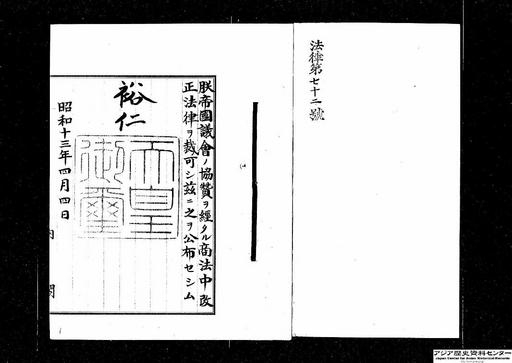 法律第七十二號
朕帝國議會ノ協贊ヲ經タル商法中改
正法律ヲ裁可シ茲ニ之ヲ公布セシム
裕仁
天皇
御璽
昭和十三年四月四日
内閣
アジア歴史資料センター
Japan Center for Asian Historical Records